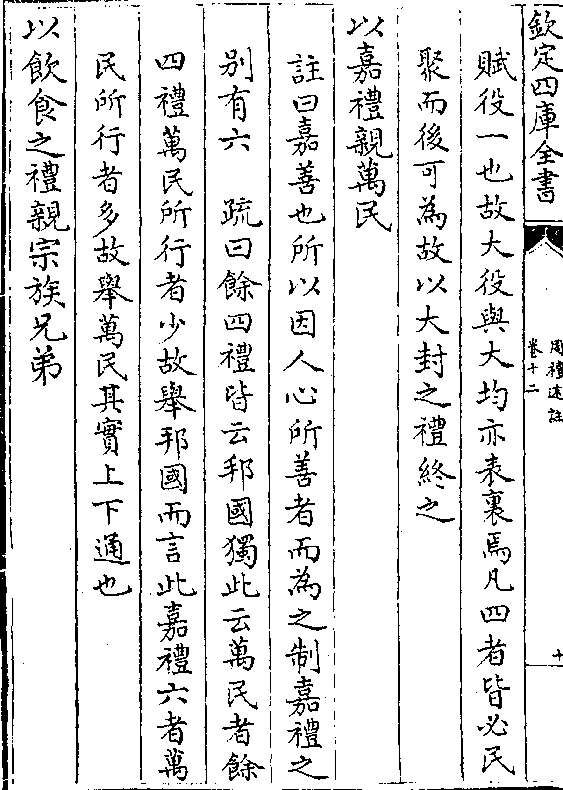 欽定四庫全書
周禮述註
卷十二
十
賦役一也故大役與大均亦表裏焉凡四者皆必民
聚而後可為故以大封之禮終之
以嘉禮親萬民
註曰嘉善也所以因人心所善者而為之制嘉禮之
別有六　疏曰餘四禮皆云邦國獨此云萬民者餘
四禮萬民所行者少故舉邦國而言此嘉禮六者萬
民所行者多故舉萬民其實上下通也
以飲食之禮親宗族兄弟